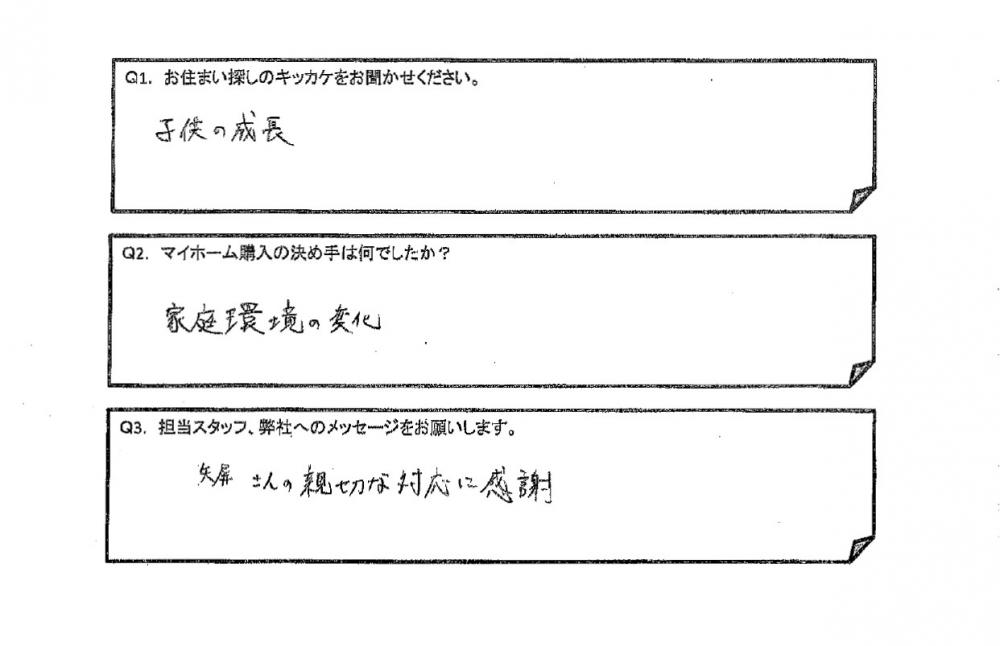 Q1. お住まい探しのキッカケをお聞かせください。
子供の成長
Q2. マイホーム購入の決め手は何でしたか？
家庭環境の変化
Q3. 担当スタッフ、弊社へのメッセージをお願いします。
さんの親切な対応に感謝